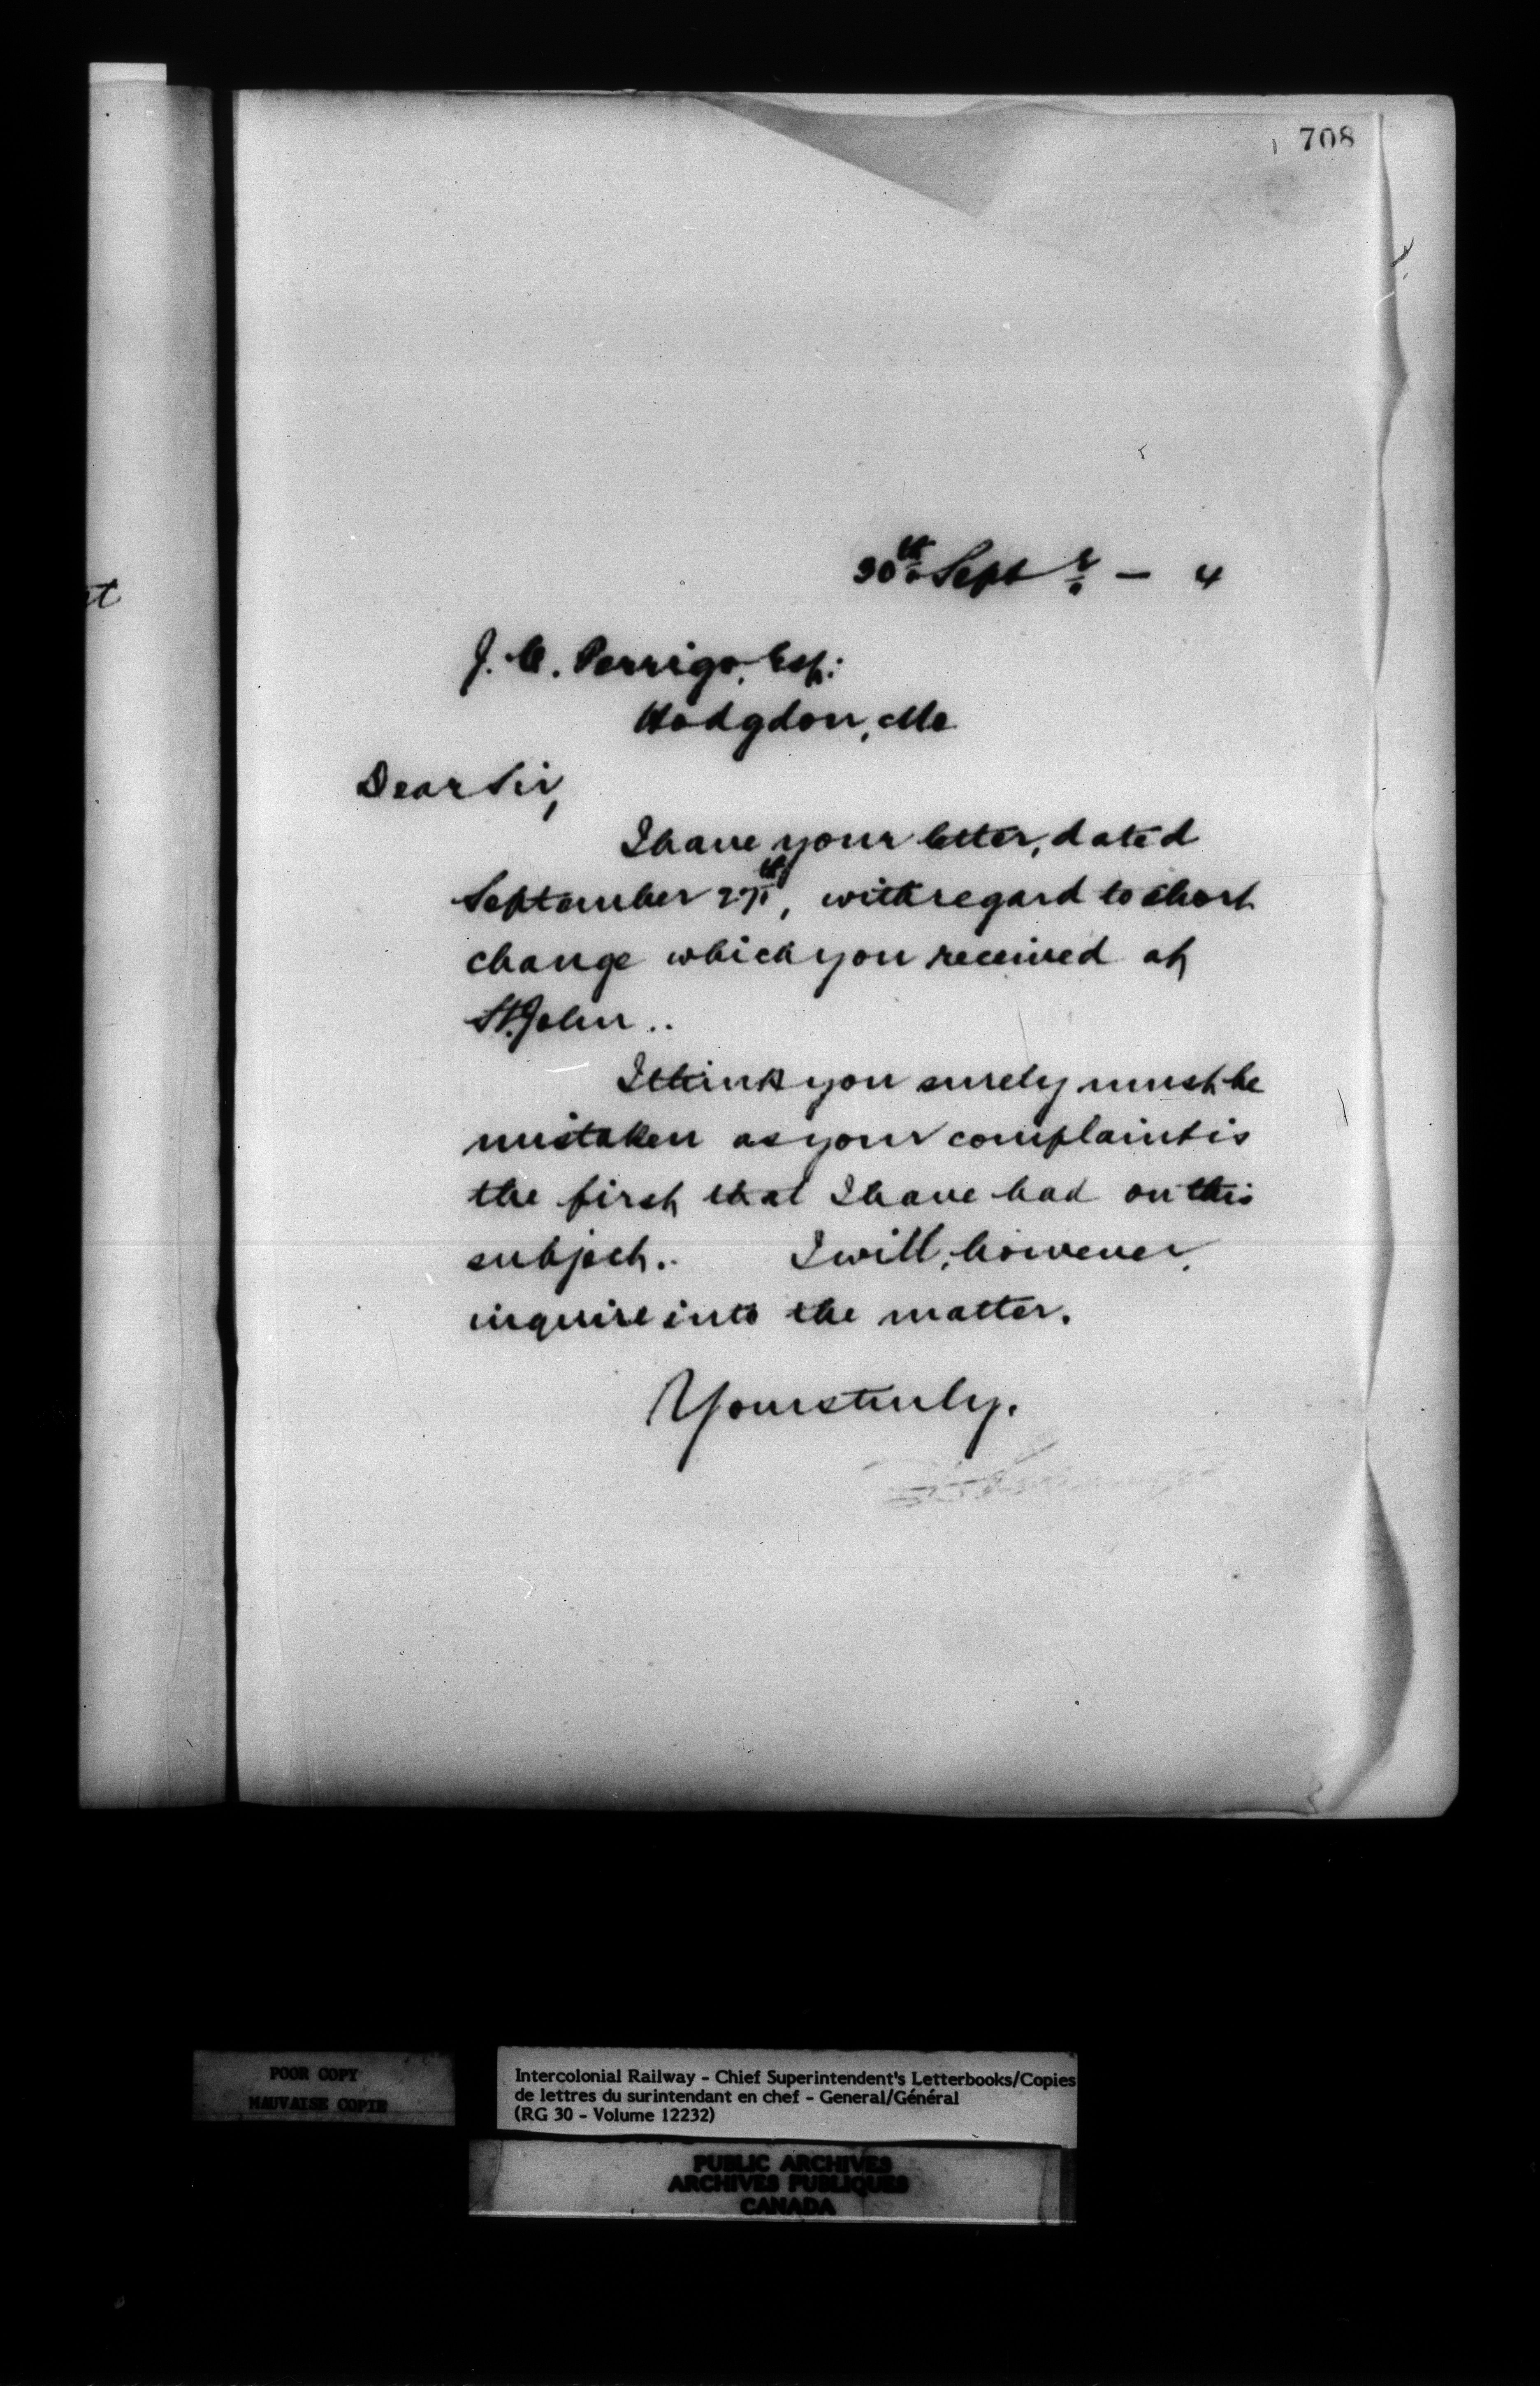 708
30th Septr — 4
J. C. Perrigo, Esq:
Hodgdon, Me
Dear Sir,
I have your letter, dated
September 27th, with regard to short
change which you received at
St. John..
I think you surely must be
mistaken as your complaint is
the first that I have had on this
subject.. I will, however,
inquire into the matter.
Yours truly.
POOR COPY
MAUVAISE COPIE
Intercolonial Railway - Chief Superintendent's Letterbooks/Copies
de lettres du surintendant en chef - General/Général
(RG 30 - Volume 12232)
PUBLIC ARCHIVES
ARCHIVES PUBLIQUES
CANADA